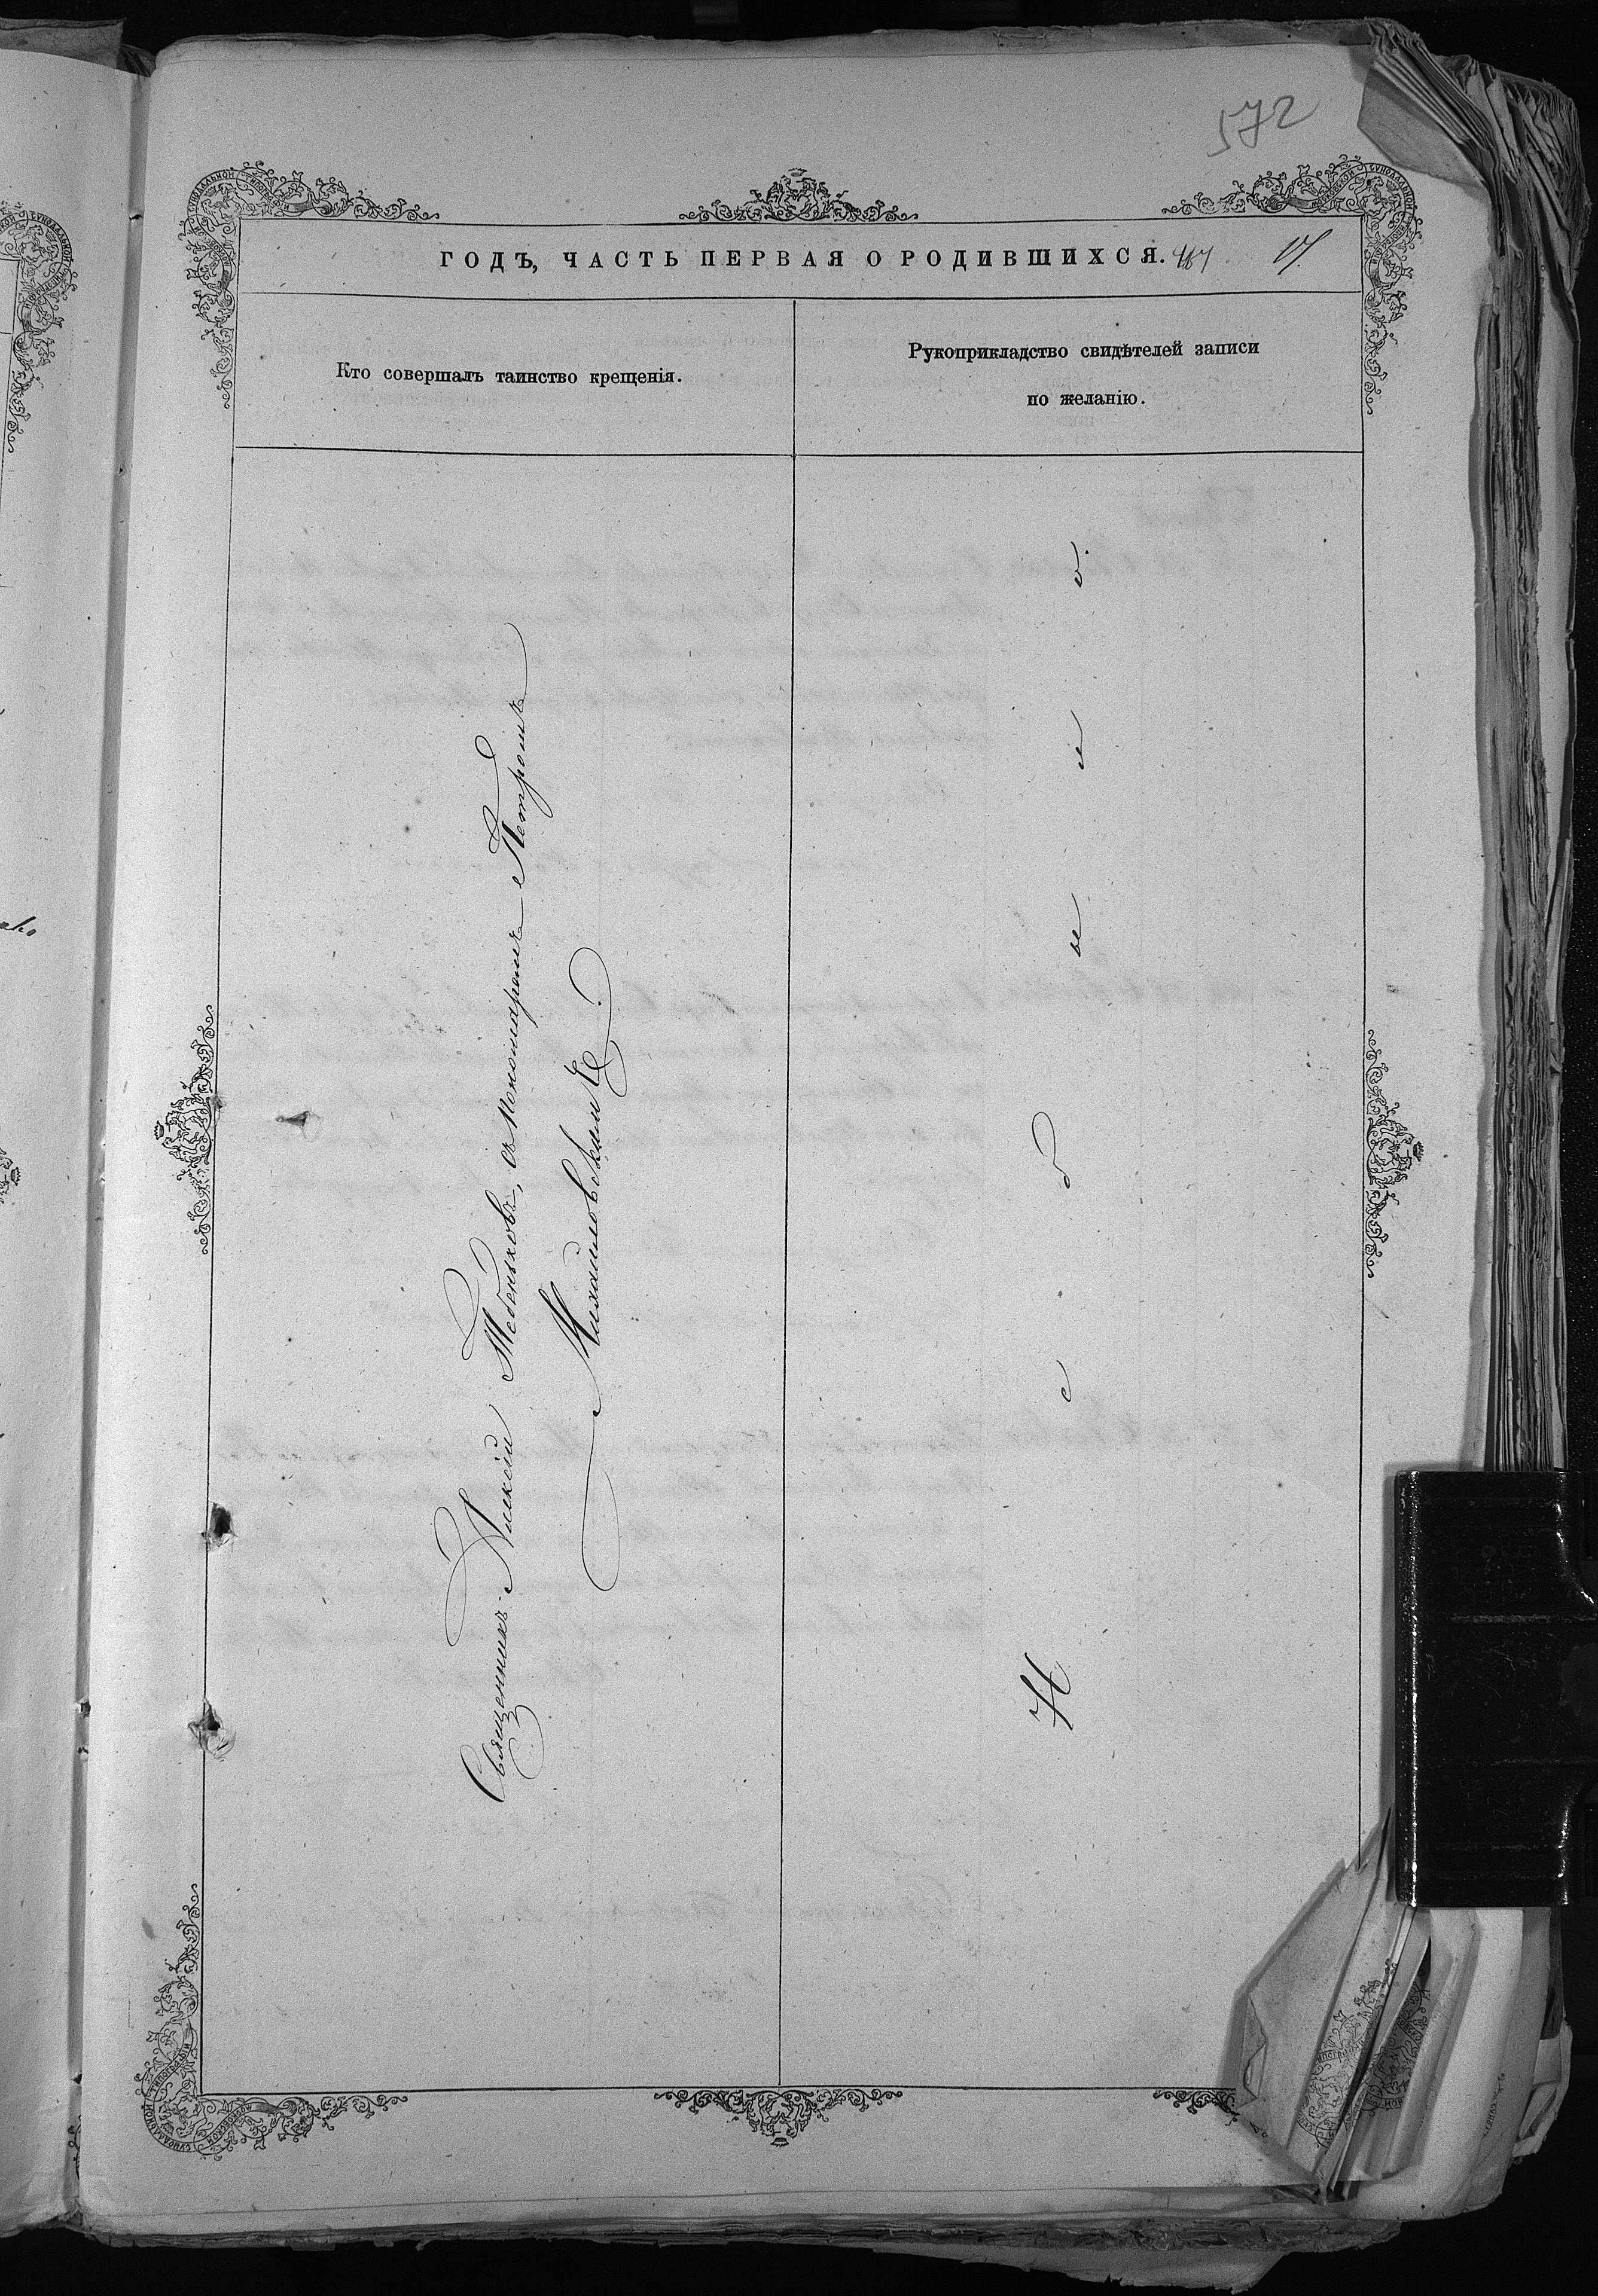 572
ГОДЪ, ЧАСТЬ ПЕРВАЯ О РОДИВШИХСЯ. 467 17.
Кто совершалъ таинство крещенія.
Рукоприкладство свидѣтелей записи
по желанію.
Священникъ Алексій Тебеньковъ, съ пономаремъ Петромъ
Михайловскимъ.
Не было.